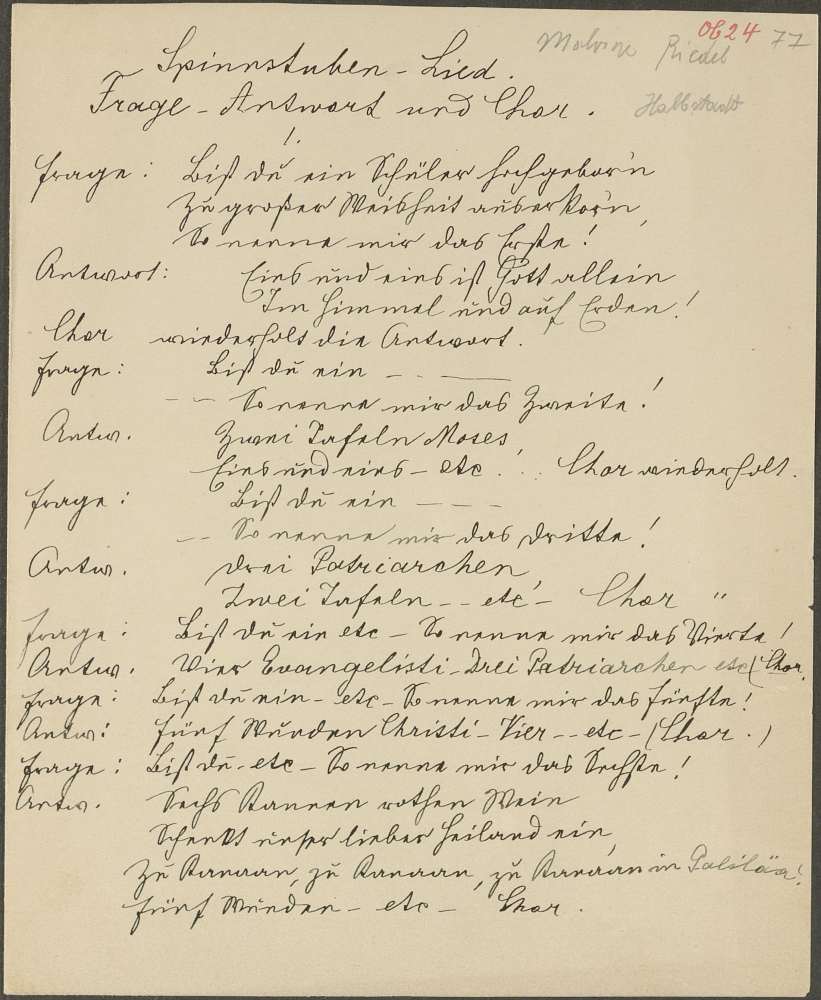 Ob 24 77
Riedel
Halbstadt
Spinnstuben-Lied.
Frage-Antwort und Chor.
1.
Frage: Bist du ein Schüler hochgebor'n
Zu großer Weisheit auserkor'n,
So nenne mir das Erste!
Antwort: Eins und eins ist Gott allein
Im Himmel und auf Erden!
Chor wiederholt die Antwort.
Frage: Bist du ein - . ——
-- So nenne mir das Zweite!
Antw. Zwei Tafeln Moses
Eins und eins - etc.'. . Chor wiederholt.
Frage: Bist du ein - - -
-- So nenne mir das Dritte!
Antw. Drei Patriarchen
Zwei Tafeln -- etc - Chor "
Frage: Bist du ein etc - So nenne mir das Vierte!
Antw. Vier Evangelisti - Drei Patriarchen etc (Chor.
Frage: Bist du ein - etc - So nenne mir das Fünfte!
Antw: Fünf Wunden Christi - Vier -- etc - (Chor.)
Frage: Bist du - etc - So nenne mir das Sechste!
Antw. Sechs Kannen rothen Wein
Schenkt unser lieber Heiland ein,
Zu Kanaan, zu Kanaan, zu Kanaan in Galiläa!
Fünf Wunden - etc - Chor.